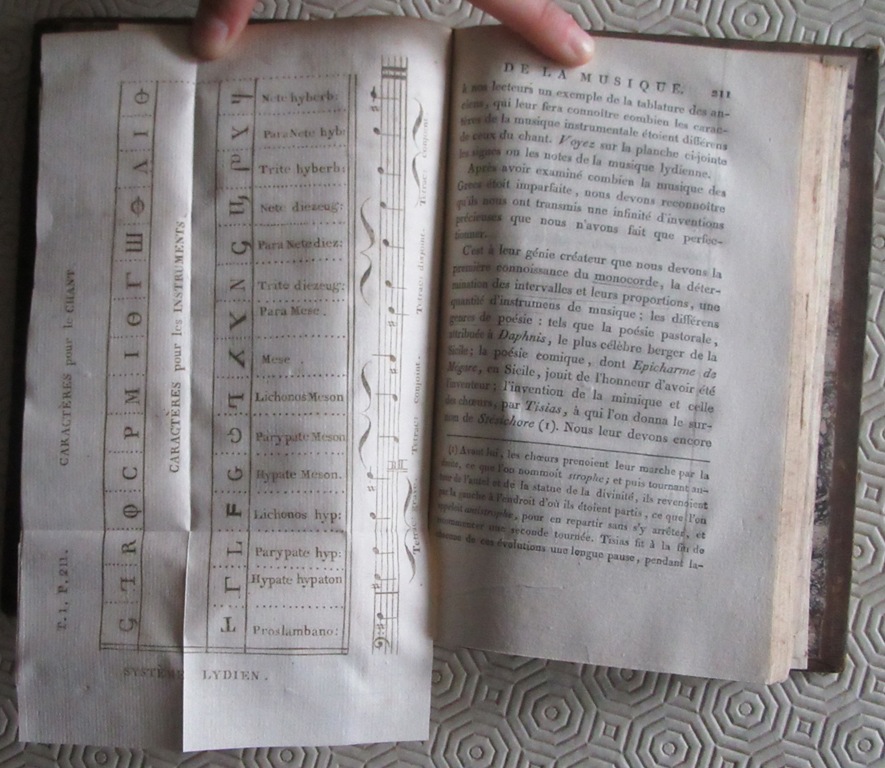 CARACTÈRES pour le CHANT
CARACTÈRES pour les INSTRUMENTS
T. 1. P. 211.
Nete hyberb:
Para Nete hyb:
Trite hyberb:
Nete diezeug:
Para Nete diez:
Trite diezeug:
Para Mese.
Mese.
Lichonos Meson
Parypate Meson
Hypate Meson.
Lichonos hyp:
Parypate hyp:
Hypate hypaton
Proslambano:
Tetrac: conjoint.
Tetrac: disjoint.
Tetrac: conjoint.
Tetrac: Grave.
SYSTÈME LYDIEN.
DE LA MUSIQUE. 211
à nos lecteurs un exemple de la tablature des an-
ciens, qui leur fera connoître combien les carac-
tères de la musique instrumentale étoient différens
de ceux du chant. Voyez sur la planche ci-jointe
les signes ou les notes de la musique lydienne.
Après avoir examiné combien la musique des
Grecs étoit imparfaite, nous devons reconnoître
qu'ils nous ont transmis une infinité d'inventions
précieuses que nous n'avons fait que perfec-
tionner.
C'est à leur génie créateur que nous devons la
première connoissance du monocorde, la déter-
mination des intervalles et leurs proportions, une
quantité d'instrumens de musique; les différens
genres de poésie : tels que la poésie pastorale,
attribuée à Daphnis, le plus célèbre berger de la
Sicile; la poésie comique, dont Epicharme de
Mégare, en Sicile, jouit de l'honneur d'avoir été
l'inventeur; l'invention de la mimique et celle
des chœurs, par Tisias, à qui l'on donna le sur-
nom de Stésichore (1). Nous leur devons encore
(1) Avant lui, les chœurs prenoient leur marche par la
droite, ce que l'on nommoit strophe; et puis tournant au-
tour de l'autel et de la statue de la divinité, ils revenoient
par la gauche à l'endroit d'où ils étoient partis, ce que l'on
appeloit antistrophe, pour en repartir sans s'y arrêter, et
recommencer une seconde tournée. Tisias fit à la fin de
chacune de ces évolutions une longue pause, pendant la-